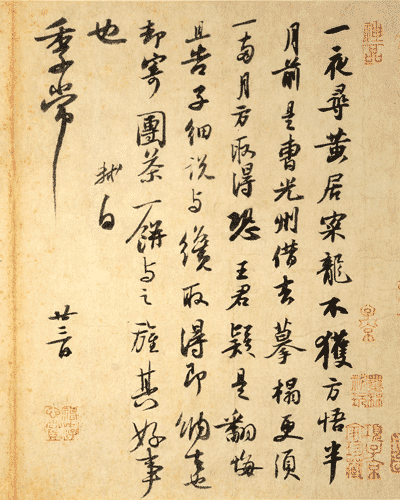 一夜尋黃居寀龍不獲方悟半
月前是曹光州借去摹搨更須
一兩月方取得恐王君疑是翻悔
且告子細說与纔取得即納去
却寄團茶一餅与之旌其好事
也 軾白
季常
廿三日